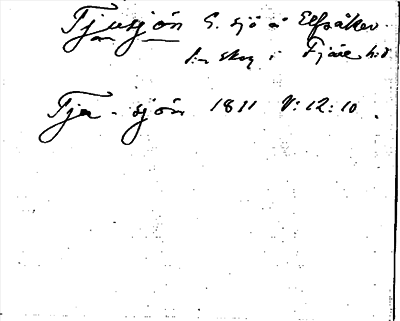 Tjusjön G. sjö å Elfsåker
s:n skog i Fjäre h:d
Tja-sjön 1811 V:12:10.